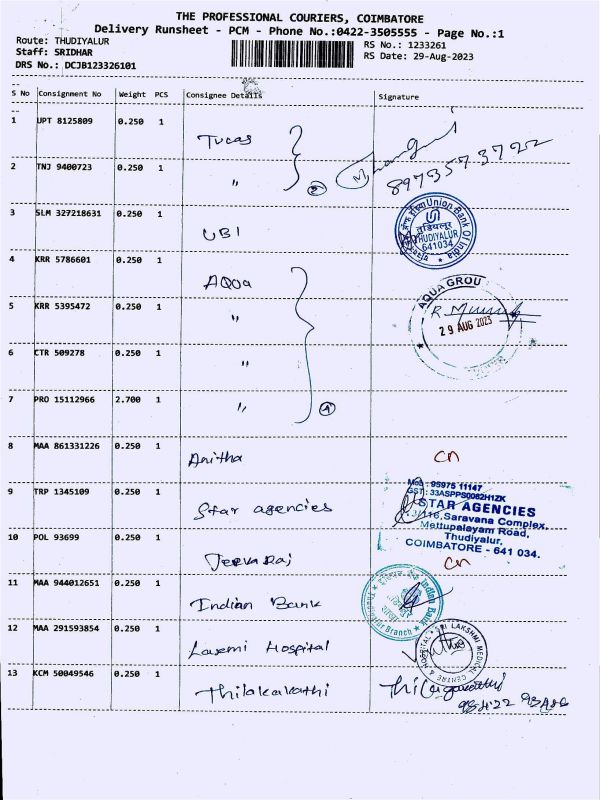 THE PROFESSIONAL COURIERS, COIMBATORE
Delivery Runsheet - PCM - Phone No.:0422-3505555 - Page No.:1
Route: THUDIYALUR
RS No.: 1233261
Staff: SRIDHAR
RS Date: 29-Aug-2023
DRS No.: DCJB123326101
S No Consignment No Weight PCS Consignee Details Signature
1 UPT 8125809 0.250 1 Tucas
8973573722
2 TNJ 9400723 0.250 1 " 2
3 SLM 327218631 0.250 1 UBI
Union Bank Of India
THUDIYALUR
641034
4 KRR 5786601 0.250 1 AQua
AQUA GROU
5 KRR 5395472 0.250 1 "
29 AUG 2023
6 CTR 509278 0.250 1 "
7 PRO 15112966 2.700 1 " 4
8 MAA 861331226 0.250 1 Anitha cn
9 TRP 1345109 0.250 1 Star agencies
Mob : 95975 11147
GST : 33ASPPS0062H1ZK
STAR AGENCIES
Saravana Complex,
Mettupalayam Road,
Thudiyalur,
COIMBATORE - 641 034.
10 POL 93699 0.250 1 JeevaRaj cn
11 MAA 944012651 0.250 1 Indian Bank
Indian Bank
Branch
12 MAA 291593854 0.250 1 Laxmi Hospital
SRI LAKSHMI MEDICAL CENTRE & HOSPITAL
13 KCM 50049546 0.250 1 Thilakavathi